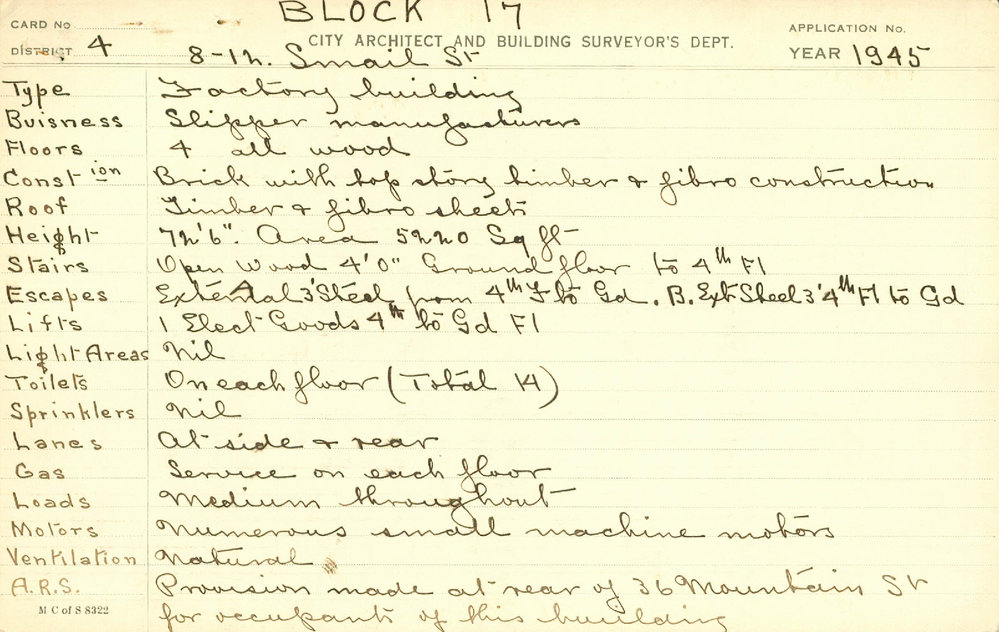 BLOCK 17
CARD No
APPLICATION No.
DISTRICT 4
CITY ARCHITECT AND BUILDING SURVEYOR'S DEPT.
YEAR 1945
8-12. Smail St
Type Factory building
Buisness Slipper manufacturers
Floors 4 all wood
Const ion Brick with top story timber & fibro construction
Roof Timber & fibro sheets
Height 72'6". Area 5220 Sq ft
Stairs Open Wood 4'0" Ground floor to 4th Fl
Escapes External A 3' Steel from 4th F to Gd. B. Ext Steel 3' 4th Fl to Gd
Lifts 1 Elect Goods 4th to Gd Fl
Light Areas Nil
Toilets On each floor (Total 14)
Sprinklers Nil
Lanes At side & rear
Gas Service on each floor
Loads Medium throughout
Motors Numerous small machine motors
Ventilation Natural
A.R.S. Provision made at rear of 36 Mountain St
M C of S 8322 for occupants of this building